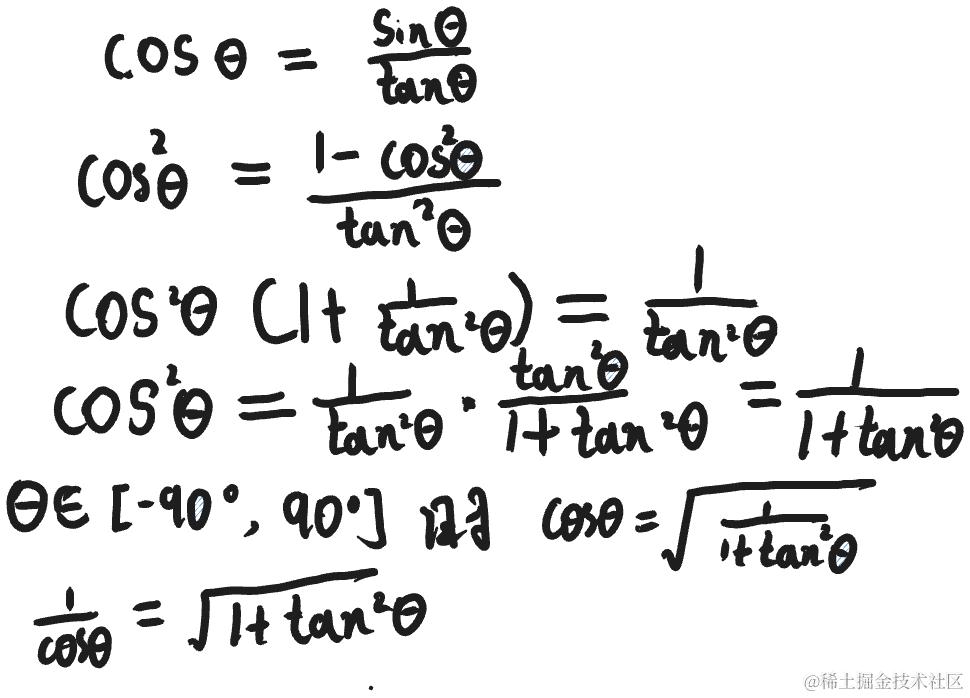 cos θ = sinθ / tanθ
cos²θ = (1 - cos²θ) / tan²θ
cos²θ (1 + 1 / tan²θ) = 1 / tan²θ
cos²θ = 1 / tan²θ · tan²θ / (1 + tan²θ) = 1 / (1 + tan²θ)
θ∈ [-90°, 90°] cosθ = √(1 / (1 + tan²θ))
1 / cosθ = √(1 + tan²θ)
@稀土掘金技术社区